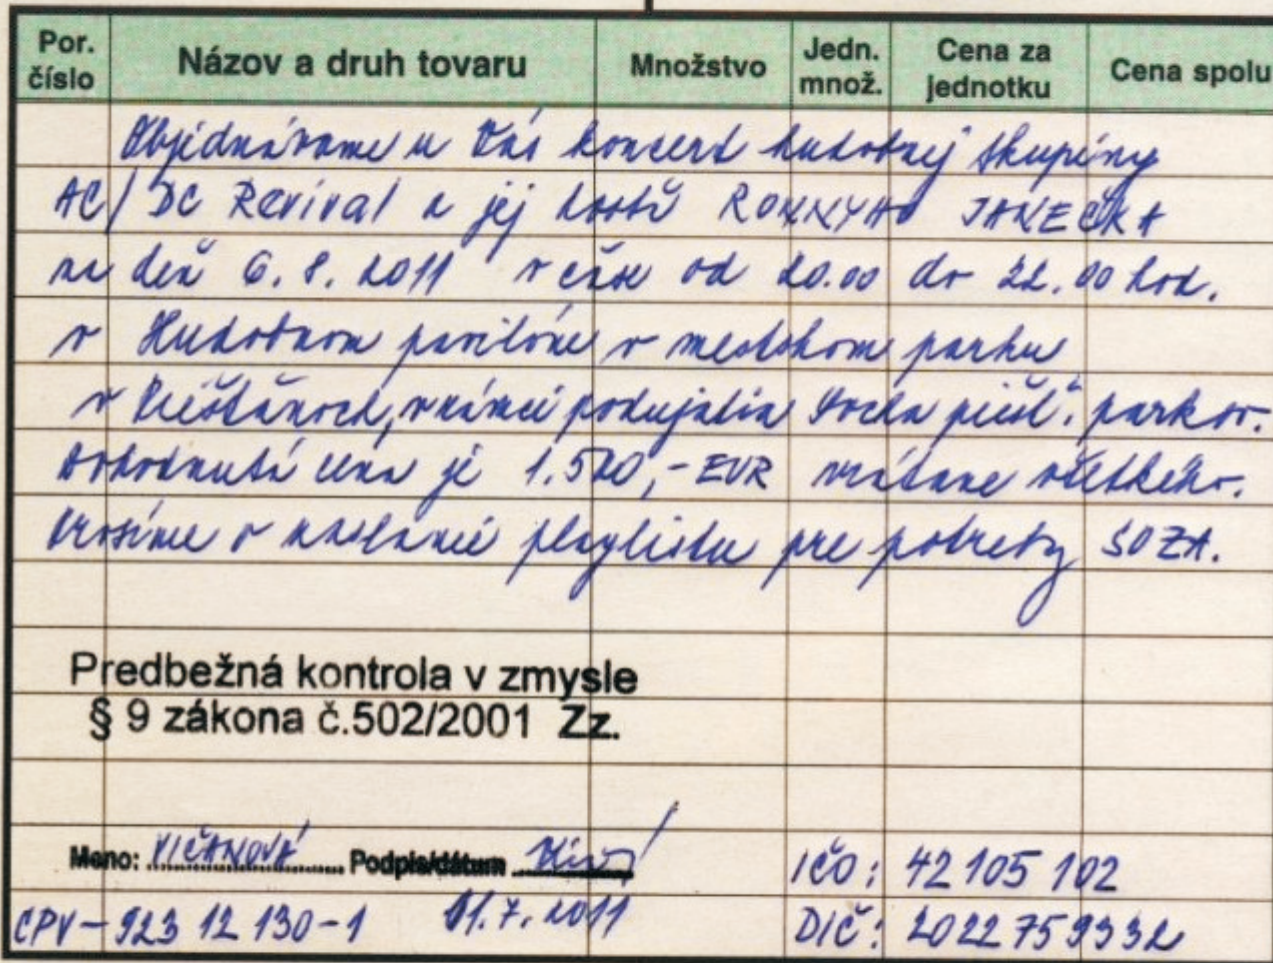 Por. číslo Názov a druh tovaru Množstvo Jedn. množ. Cena za jednotku Cena spolu
Objednávame u Vás koncert hudobnej skupiny
AC/DC Revival a jej hostí RONNYHO JANEČKA
na deň 6. 8. 2011 v čase od 20.00 do 22.00 hod.
v Hudobnom pavilóne v mestskom parku
v Piešťanoch, v rámci podujatia piešť. parkov.
Dohodnutá cena je 1.500,- EUR vrátane všetkého.
Prosíme o zaslanie playlistu pre potreby SOZA.
Predbežná kontrola v zmysle
§ 9 zákona č.502/2001 Zz.
Meno: VIČANOVÁ Podpis/dátum
IČO: 42 105 102
CPV - 923 12 130-1 01.7.2011 DIČ: 2022759332